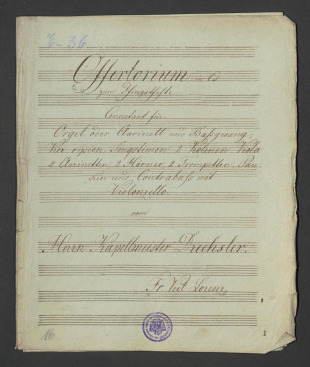 Offertorium in C
zum Pfingstfeste
Concertant für
Orgel oder Clarinett und Baßgesang
Vier ripien Singstimen 2 Violinen Viola
2 Clarinetten, 2 Hörner, 2 Trompetten, Pau-
ken und Contrabaß mit
Violonzello
von
Herrn Kapellmeister Drechsler.
Fr. Veit Lorenz
1